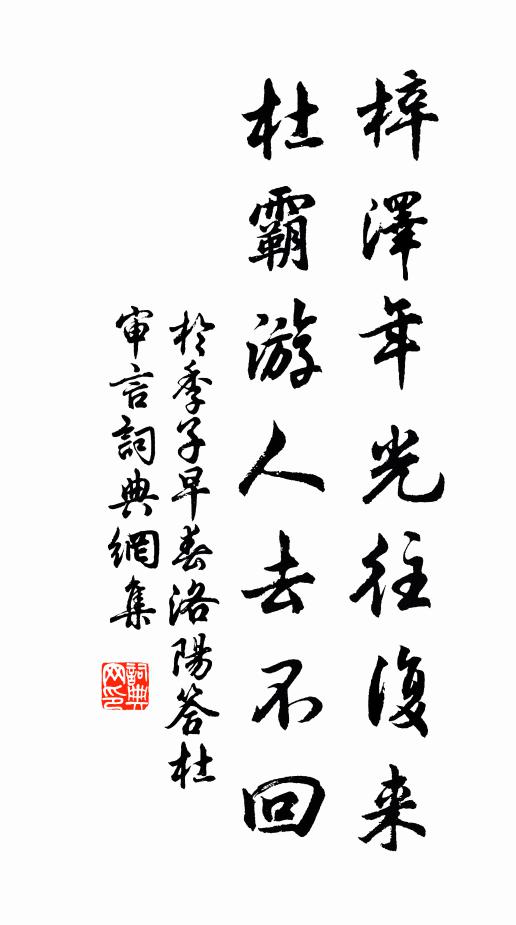 梓澤年光往復来
杜霸游人去不回
於季子早春洛陽答杜
审言詞典網集
詞典網印